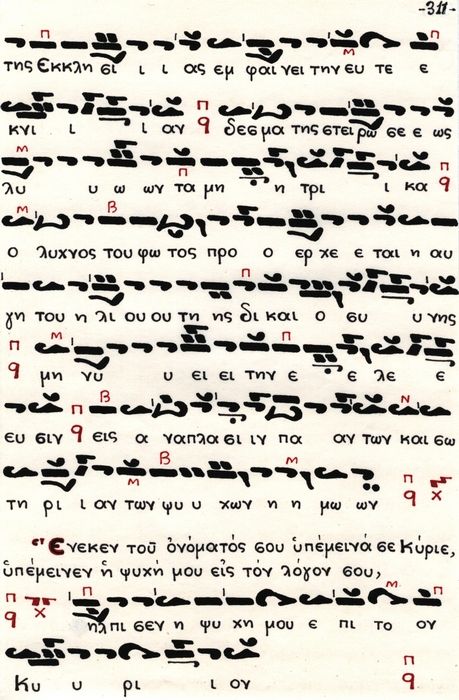 -311-
της Εκκλη σι ι ι ας εμ φαι νει την ευ τε ε
κνι ι ι ι αν δεσ μα της στει ρω σε ε ως
λυ υ ω ων τα μη η τρι ι κα
ο λυχνος του φω τος προ ο ερ χε ε ται η αυ
γη του η λι ου ου τη ης δι και ο συ υ νης
μη νυ υ ει ει την ε ε λε ε
ευ σιν εις α ναπλα σι ιν πα αν των και σω
τη ρι ι αν των ψυ υ χων η η μω ων
Ενεκεν τοῦ ὀνόματός σου ὑπέμεινά σε Κύριε,
ὑπέμεινεν ἡ ψυχή μου εἰς τόν λόγον σου,
ηλπι σεν η ψυ χη μου ε πι το ον
Κυ υ ρι ι ον